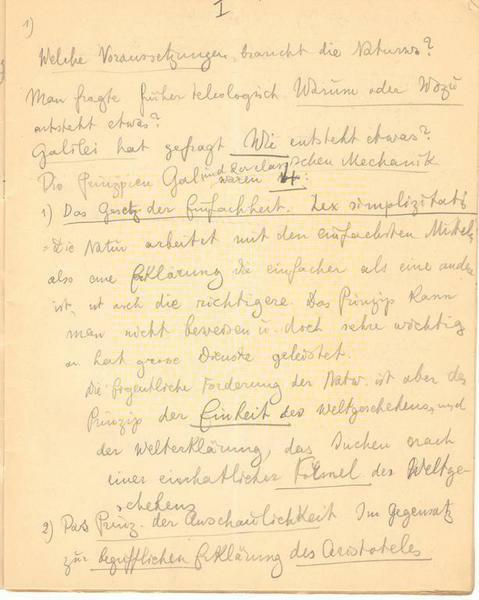 I
1)
Welche Voraussetzungen braucht die Naturw.?
Man fragte früher teleologisch Warum oder Wozu
entsteht etwas?
Galilei hat gefragt Wie entsteht etwas?
Die Prinzipien Gal. und der classischen Mechanik
waren 4:
1) Das Gesetz der Einfachheit. Lex simplizitatis
Die Natur arbeitet mit den einfachsten Mitteln
also eine Erklärung die einfacher als eine andere
ist, ist auch die richtigere. Das Prinzip kann
man nicht beweisen u. doch sehr wichtig
u. hat grosse Dienste geleistet.
Die eigentliche Forderung der Natw. ist aber das
Prinzip der Einheit des Weltgeschehens, und
der Welterklärung, das Suchen nach
einer einheitlichen Formel des Weltge-
schehens
2) Das Prinz. der Anschaulichkeit Im Gegensatz
zur begrifflichen Erklärung des Aristoteles